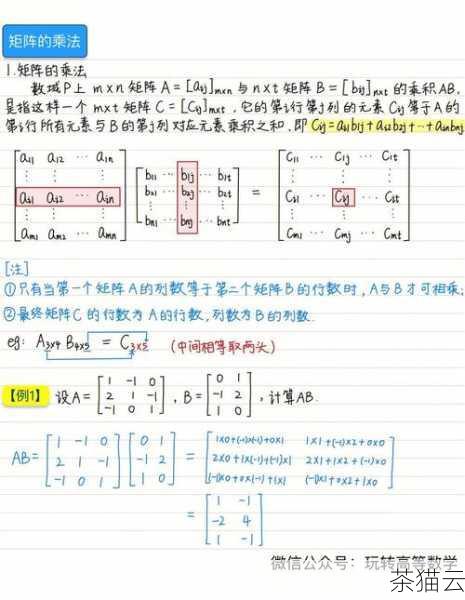 矩阵的乘法
1.矩阵的乘法
数域P上 m×n 矩阵 A = [aij]m×n 与 n×t 矩阵 B = [bij]n×t 的乘积AB,
是指这样一个 m×t 矩阵 C = [Cij]m×t , 它的第i行第j列的元素 Cij 等于A的
第i行所有元素与B的第j列对应元素乘积之和, 即 Cij = ai1b1j + ai2b2j + ··· + ainbnj
a11 a12 ··· a1n
⋮ ⋮ ⋮
ai1 ai2 ··· ain
⋮ ⋮ ⋮
am1 am2 ··· amn
b11 ··· b1j ··· b1t
b21 ··· b2j ··· b2t
⋮ ⋮ ⋮
bn1 ··· bnj ··· bnt
=
C11 ··· C1j ··· C1t
⋮ ⋮ ⋮
Ci1 ··· Cij ··· Cit
⋮ ⋮ ⋮
Cm1 ··· Cmj ··· Cmt
[注]
①只有当第一个矩阵A的列数等于第二个矩阵B的行数时, A与B才可相乘;
②最终矩阵C的行数为A的行数, 列数为B的列数.
eg: A3×4 B4×5 = C3×5 (中间相等取两头)
【例1】 设A = [1 -1 0; 2 1 -1; -1 0 1], B = [0 1; -1 2; 1 0], 计算AB.
AB = [1 -1 0; 2 1 -1; -1 0 1] [0 1; -1 2; 1 0] = [1×0+(-1)×(-1)+0×1 1×1+(-1)×2+0×0; 2×0+1×(-1)+(-1)×1 2×1+1×2+(-1)×0; (-1)×0+0×(-1)+1×1 (-1)×1+0×2+1×0]
= [1 -1; -2 4; 1 -1]
微信公众号：玩转高等数学
茶猫云